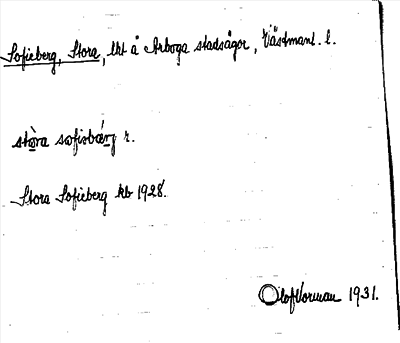 Sofieberg, Stora, lht å Arboga stadsägor, Västmanl. l.
stòra sofisbǽrj r.
Stora Sofieberg kb 1928.
Olof Vorman 1931.